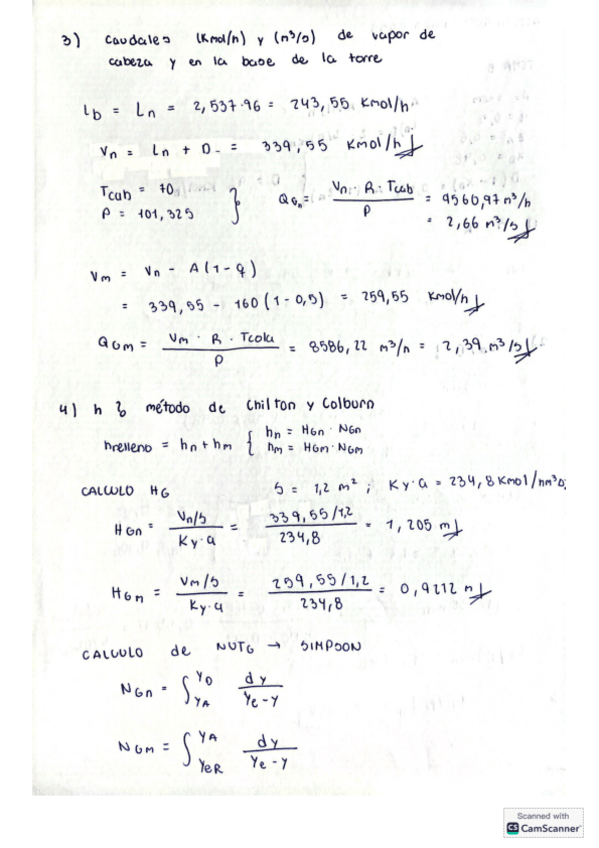 3) Caudales (Kmol/h) y (m³/s) de vapor de
cabeza y en la base de la torre
Lb = Ln = 2,537·96 = 243,55 Kmol/h
Vn = Ln + D = 339,55 Kmol/h
Tcab = 70
P = 101,325
QGn = Vn · R · Tcab / P = 9560,97 m³/h
= 2,66 m³/s
Vm = Vn - A(1-q)
= 339,55 - 160(1-0,5) = 259,55 Kmol/h
QGm = Vm · R · Tcola / P = 8586,22 m³/h = 2,39 m³/s
4) h método de Chilton y Colburn
hrelleno = hn + hm { hn = HGn · NGn
hm = HGm · NGm
CALCULO HG S = 1,2 m² ; Ky·a = 234,8 Kmol/hm³
HGn = Vn/S / Ky·a = 339,55/1,2 / 234,8 = 1,205 m
HGm = Vm/S / Ky·a = 259,55/1,2 / 234,8 = 0,9212 m
CALCULO de NUTG → SIMPSON
NGn = ∫ YA YD dy / Ye-y
NGm = ∫ YeR YA dy / Ye-y
Scanned with
CS CamScanner